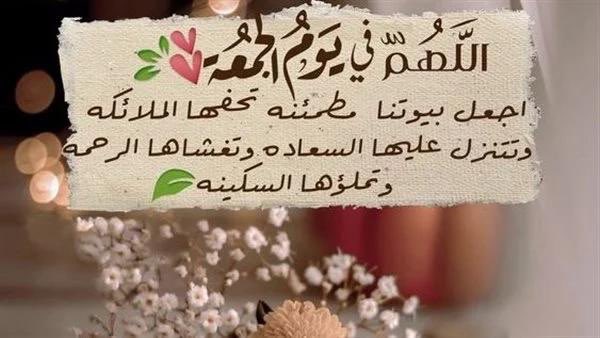 اللَّهُمّ في يَوَمُ الجمُعُة
اجعل بيوتنا مطمئنه تحفها الملائكه
وتتنزل عليها السعاده وتغشاها الرحمه
وتملؤها السكينه